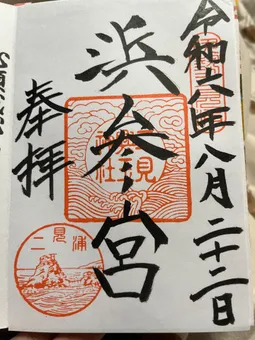 令和六年八月二十二日
浜参宮
奉拝
二見
二見浦